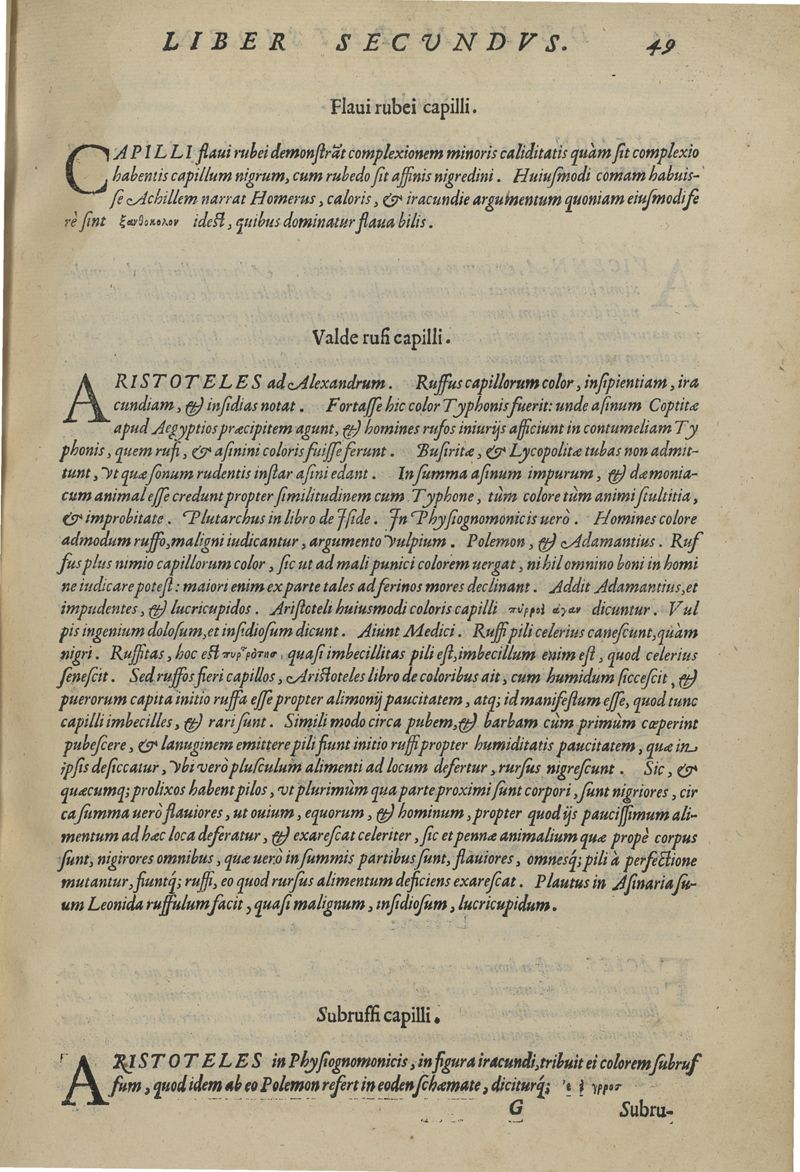 LIBER SECVNDVS. 49
Flaui rubei capilli.
CAPILLI flaui rubei demonstrāt complexionem minoris caliditatis quàm sit complexio
habentis capillum nigrum, cum rubedo sit affinis nigredini. Huiusmodi comam habuis-
se Achillem narrat Homerus, caloris, & iracundie argumentum quoniam eiusmodi fe
rè sint ξανθοκολον idest, quibus dominatur flaua bilis.
Valde rufi capilli.
ARISTOTELES ad Alexandrum. Ruffus capillorum color, insipientiam, ira
cundiam, & insidias notat. Fortasse hic color Typhonis fuerit: unde asinum Coptitæ
apud Aegyptios præcipitem agunt, & homines rufos iniurijs afficiunt in contumeliam Ty
phonis, quem rufi, & asinini coloris fuisse ferunt. Busiritæ, & Lycopolitæ tubas non admit-
tunt, vt quæ sonum rudentis instar asini edant. In summa asinum impurum, & dæmonia-
cum animal esse credunt propter similitudinem cum Typhone, tùm colore tùm animi stultitia,
& improbitate. Plutarchus in libro de Iside. In Physiognomonicis uerò. Homines colore
admodum ruffo, maligni iudicantur, argumento vulpium. Polemon, & Adamantius. Ruf
fus plus nimio capillorum color, sic ut ad mali punici colorem uergat, nihil omnino boni in homi
ne iudicare potest: maiori enim ex parte tales ad ferinos mores declinant. Addit Adamantius, et
impudentes, & lucricupidos. Aristoteli huiusmodi coloris capilli πύρροὶ ἄγαν dicuntur. Vul
pis ingenium dolosum, et insidiosum dicunt. Aiunt Medici. Ruffi pili celerius canescunt, quàm
nigri. Ruffitas, hoc est πυρρότης, quasi imbecillitas pili est, imbecillum enim est, quod celerius
senescit. Sed ruffos fieri capillos, Aristoteles libro de coloribus ait, cum humidum siccescit, &
puerorum capita initio ruffa esse propter alimonij paucitatem, atq; id manifestum esse, quod tunc
capilli imbecilles, & rari sunt. Simili modo circa pubem, & barbam cùm primùm cœperint
pubescere, & lanuginem emittere pili fiunt initio ruffi propter humiditatis paucitatem, quæ in
ipsis desiccatur, vbi verò plusculum alimenti ad locum defertur, rursus nigrescunt. Sic, &
quæcumq; prolixos habent pilos, vt plurimùm qua parte proximi sunt corpori, sunt nigriores, cir
ca summa uerò flauiores, ut ouium, equorum, & hominum, propter quod ijs paucissimum ali-
mentum ad hæc loca deferatur, & exarescat celeriter, sic et pennæ animalium quæ propè corpus
sunt, nigirores omnibus, quæ uerò in summis partibus sunt, flauiores, omnesq; pili à perfectione
mutantur, fiuntq; ruffi, eo quod rursus alimentum deficiens exarescat. Plautus in Asinaria su-
um Leonida ruffulum facit, quasi malignum, insidiosum, lucricupidum.
Subruffi capilli.
ARISTOTELES in Physiognomonicis, in figura iracundi, tribuit ei colorem subruf
fum, quod idem ab eo Polemon refert in eoden schæmate, diciturq;
G Subru-